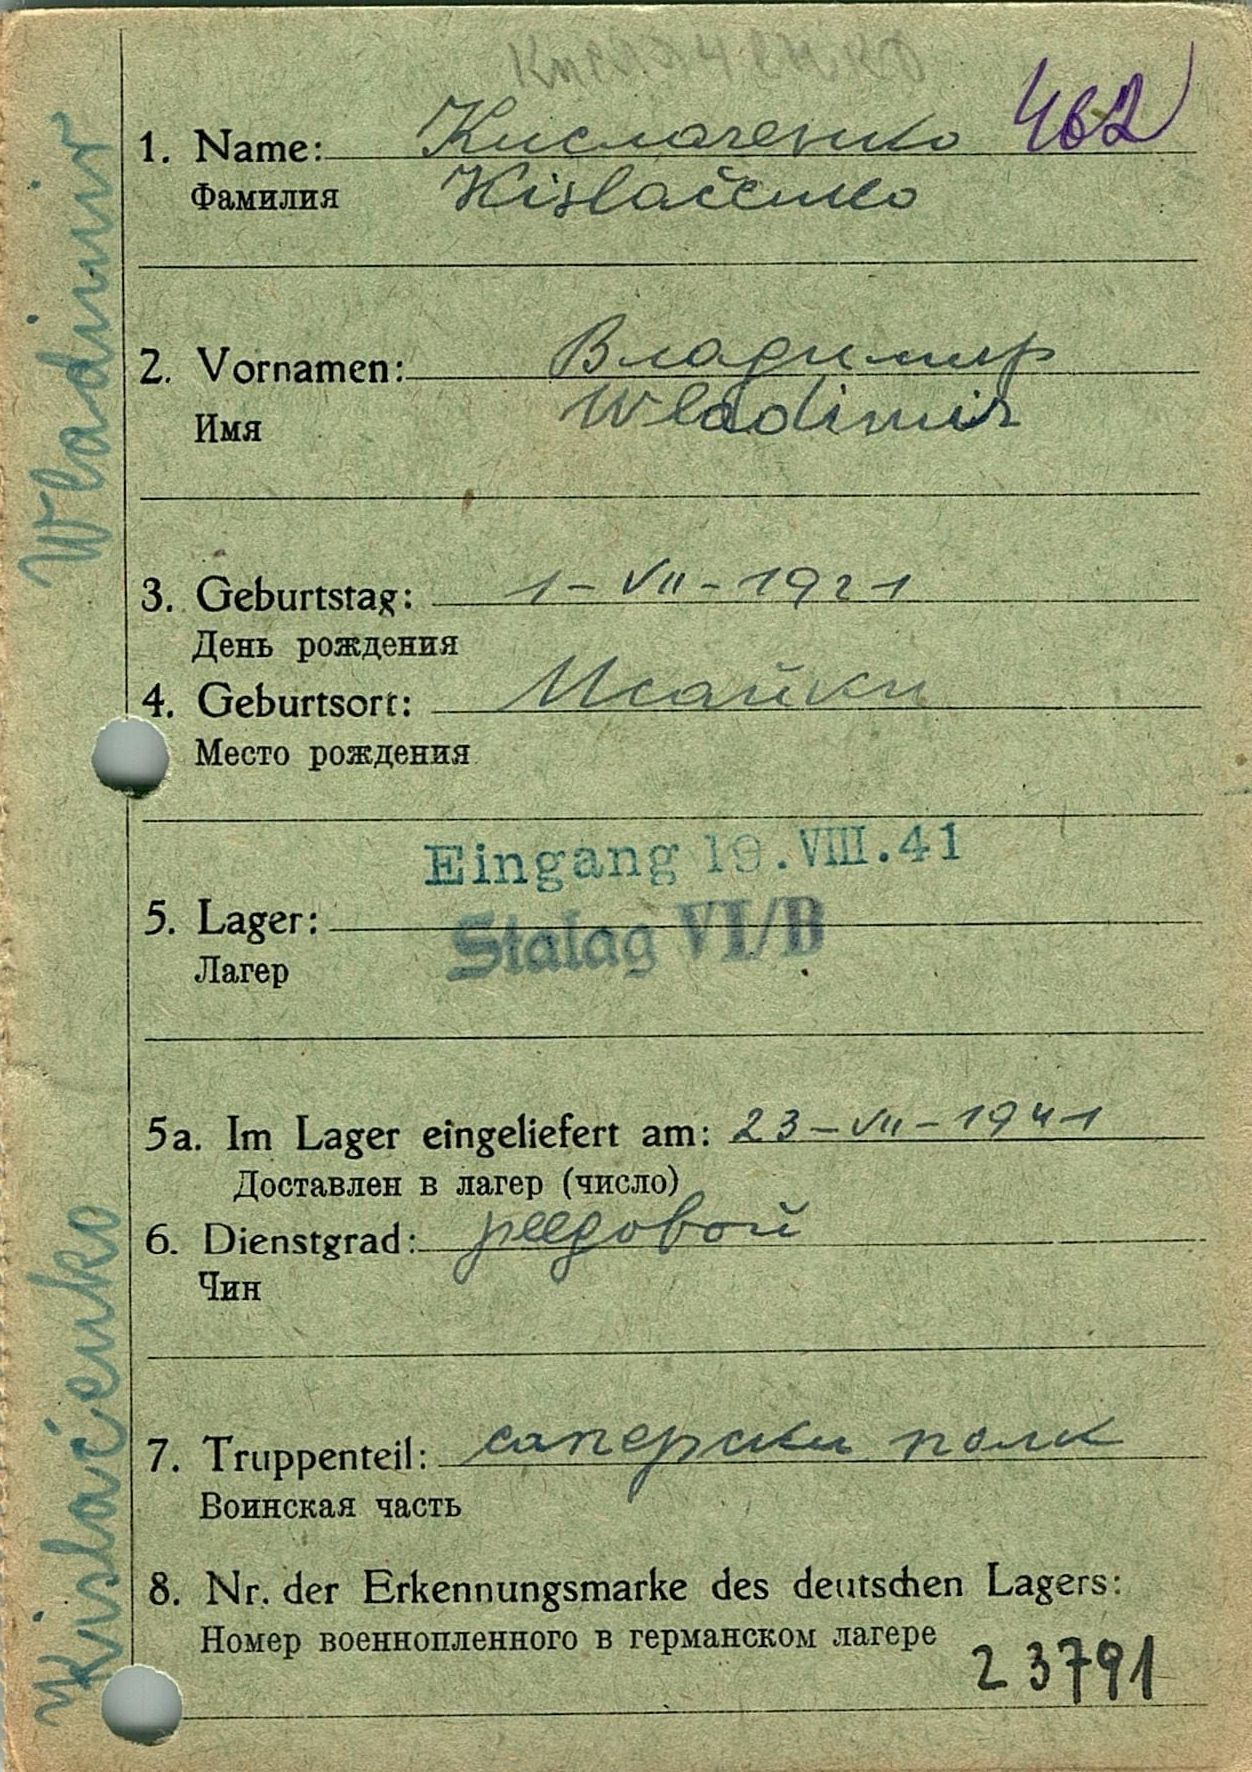 462
1. Name: Кислаченко
Фамилия Kislačenko
2. Vornamen: Владимир
Имя Wladimir
3. Geburtstag: 1-VII-1921
День рождения
4. Geburtsort: Исайки
Место рождения
Eingang 19.VIII.41
5. Lager: Stalag VI/B
Лагер
5a. Im Lager eingeliefert am: 23-VII-1941
Доставлен в лагер (число)
6. Dienstgrad: рєедовой
Чин
7. Truppenteil: саперски полк
Воинская часть
8. Nr. der Erkennungsmarke des deutschen Lagers:
Номер военнопленного в германском лагере
23791
Kislačenko Wladimir